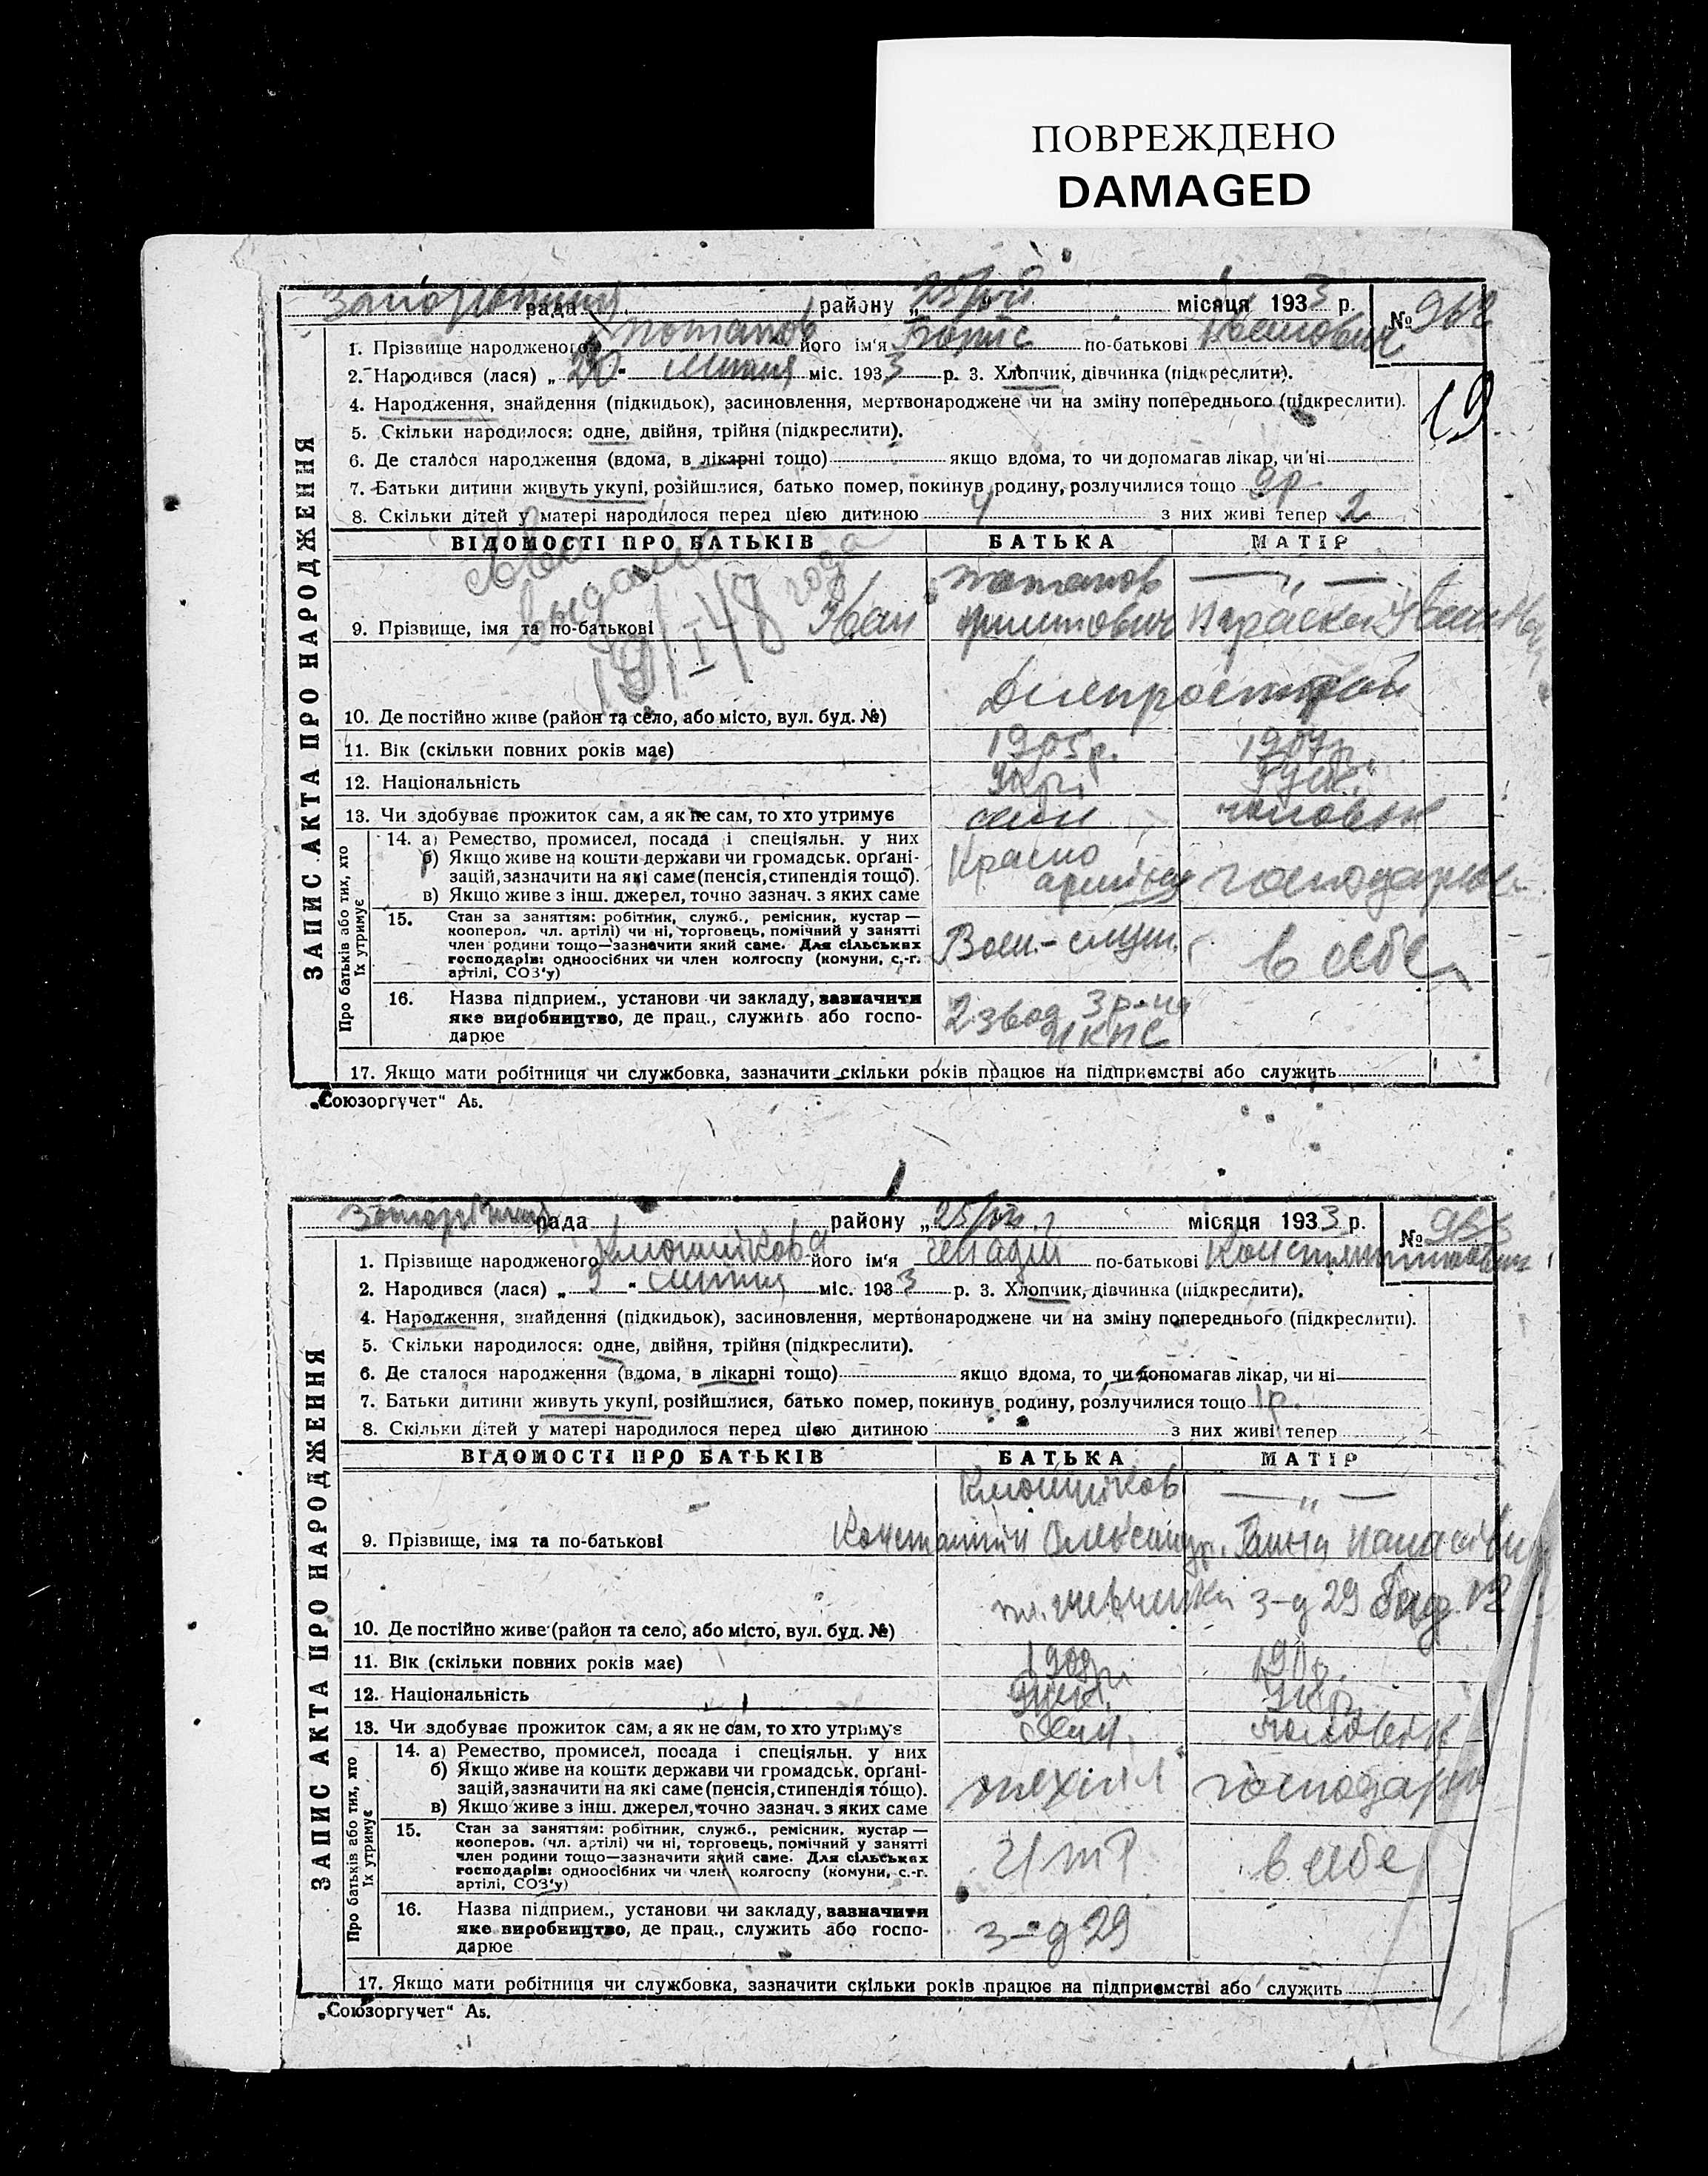 ПОВРЕЖДЕНО
DAMAGED
рада району „25/VII місяця 1933 р. №
1. Прізвище народженого Потапов його ім'я Борис по-батькові Іванович
2. Народився (лася) „20" липня міс. 1933 р. 3. Хлопчик, дівчинка (підкреслити).
19
4. Народження, знайдення (підкидьок), засиновлення, мертвонароджене чи на зміну попереднього (підкреслити).
5. Скільки народилося: одне, двійня, трійня (підкреслити).
6. Де сталося народження (вдома, в лікарні тощо) якщо вдома, то чи допомагав лікар, чи ні
7. Батьки дитини живуть укупі, розійшлися, батько помер, покинув родину, розлучилися тощо 9р.
8. Скільки дітей у матері народилося перед цією дитиною 4 з них живі тепер 2
ЗАПИС АКТА ПРО НАРОДЖЕННЯ
ВІДОМОСТІ ПРО БАТЬКІВ БАТЬКА МАТІР
выдано 19/I 48 года
Потапов — „ —
9. Прізвище, імя та по-батькові Іван Параска
10. Де постійно живе (район та село, або місто, вул. буд. №) Дніпрострой
11. Вік (скільки повних років має) 1905р.
12. Національність Укр. Руск.
13. Чи здобуває прожиток сам, а як не сам, то хто утримує сам чоловік
Про батьків або тих, хто їх утримує
14. а) Ремество, промисел, посада і спеціяльн. у них
б) Якщо живе на кошти держави чи громадськ. органі-
зацій, зазначити на які саме (пенсія, стипендія тощо).
в) Якщо живе з інш. джерел, точно зазнач. з яких саме
Красно
господарює
15. Стан за заняттям: робітник, служб., ремісник, кустар —
коопероп. чл. артілі) чи ні, торговець, помічний у занятті
член родини тощо—зазначити який саме. Для сільських
господарів: одноосібних чи член колгоспу (комуни, с.-г.
артілі, СОЗ'у)
Воен.-служ. в себе
16. Назва підприєм., установи чи закладу, зазначити
яке виробництво, де прац., служить або госпо-
дарює
2 звод 3 р-на
НКПС
17. Якщо мати робітниця чи службовка, зазначити скільки років працює на підприємстві або служить
„Союзоргучет" Аб.
рада району „25/VII місяця 1933 р. №
1. Прізвище народженого його ім'я Генадій по-батькові Константинович
2. Народився (лася) „9" липня міс. 1933 р. 3. Хлопчик, дівчинка (підкреслити).
4. Народження, знайдення (підкидьок), засиновлення, мертвонароджене чи на зміну попереднього (підкреслити).
5. Скільки народилося: одне, двійня, трійня (підкреслити).
6. Де сталося народження (вдома, в лікарні тощо) якщо вдома, то чи допомагав лікар, чи ні
7. Батьки дитини живуть укупі, розійшлися, батько помер, покинув родину, розлучилися тощо 1р.
8. Скільки дітей у матері народилося перед цією дитиною з них живі тепер
ЗАПИС АКТА ПРО НАРОДЖЕННЯ
ВІДОМОСТІ ПРО БАТЬКІВ БАТЬКА МАТІР
— „ —
9. Прізвище, імя та по-батькові Константин Олександр. Ганна
10. Де постійно живе (район та село, або місто, вул. буд. №) Шевченка з-д 29 буд.
11. Вік (скільки повних років має)
12. Національність Руск. Укр.
13. Чи здобуває прожиток сам, а як не сам, то хто утримує сам чоловік
Про батьків або тих, хто їх утримує
14. а) Ремество, промисел, посада і спеціяльн. у них
б) Якщо живе на кошти держави чи громадськ. органі-
зацій, зазначити на які саме (пенсія, стипендія тощо).
в) Якщо живе з інш. джерел, точно зазнач. з яких саме
господарює
15. Стан за заняттям: робітник, служб., ремісник, кустар —
кооперов. (чл. артілі) чи ні, торговець, помічний у занятті
член родини тощо—зазначити який саме. Для сільських
господарів: одноосібних чи член колгоспу (комуни, с.-г.
артілі, СОЗ'у)
ІТР в себе
16. Назва підприєм., установи чи закладу, зазначити
яке виробництво, де прац., служить або госпо-
дарює
з-д 29
17. Якщо мати робітниця чи службовка, зазначити скільки років працює на підприємстві або служить
„Союзоргучет" Аб.